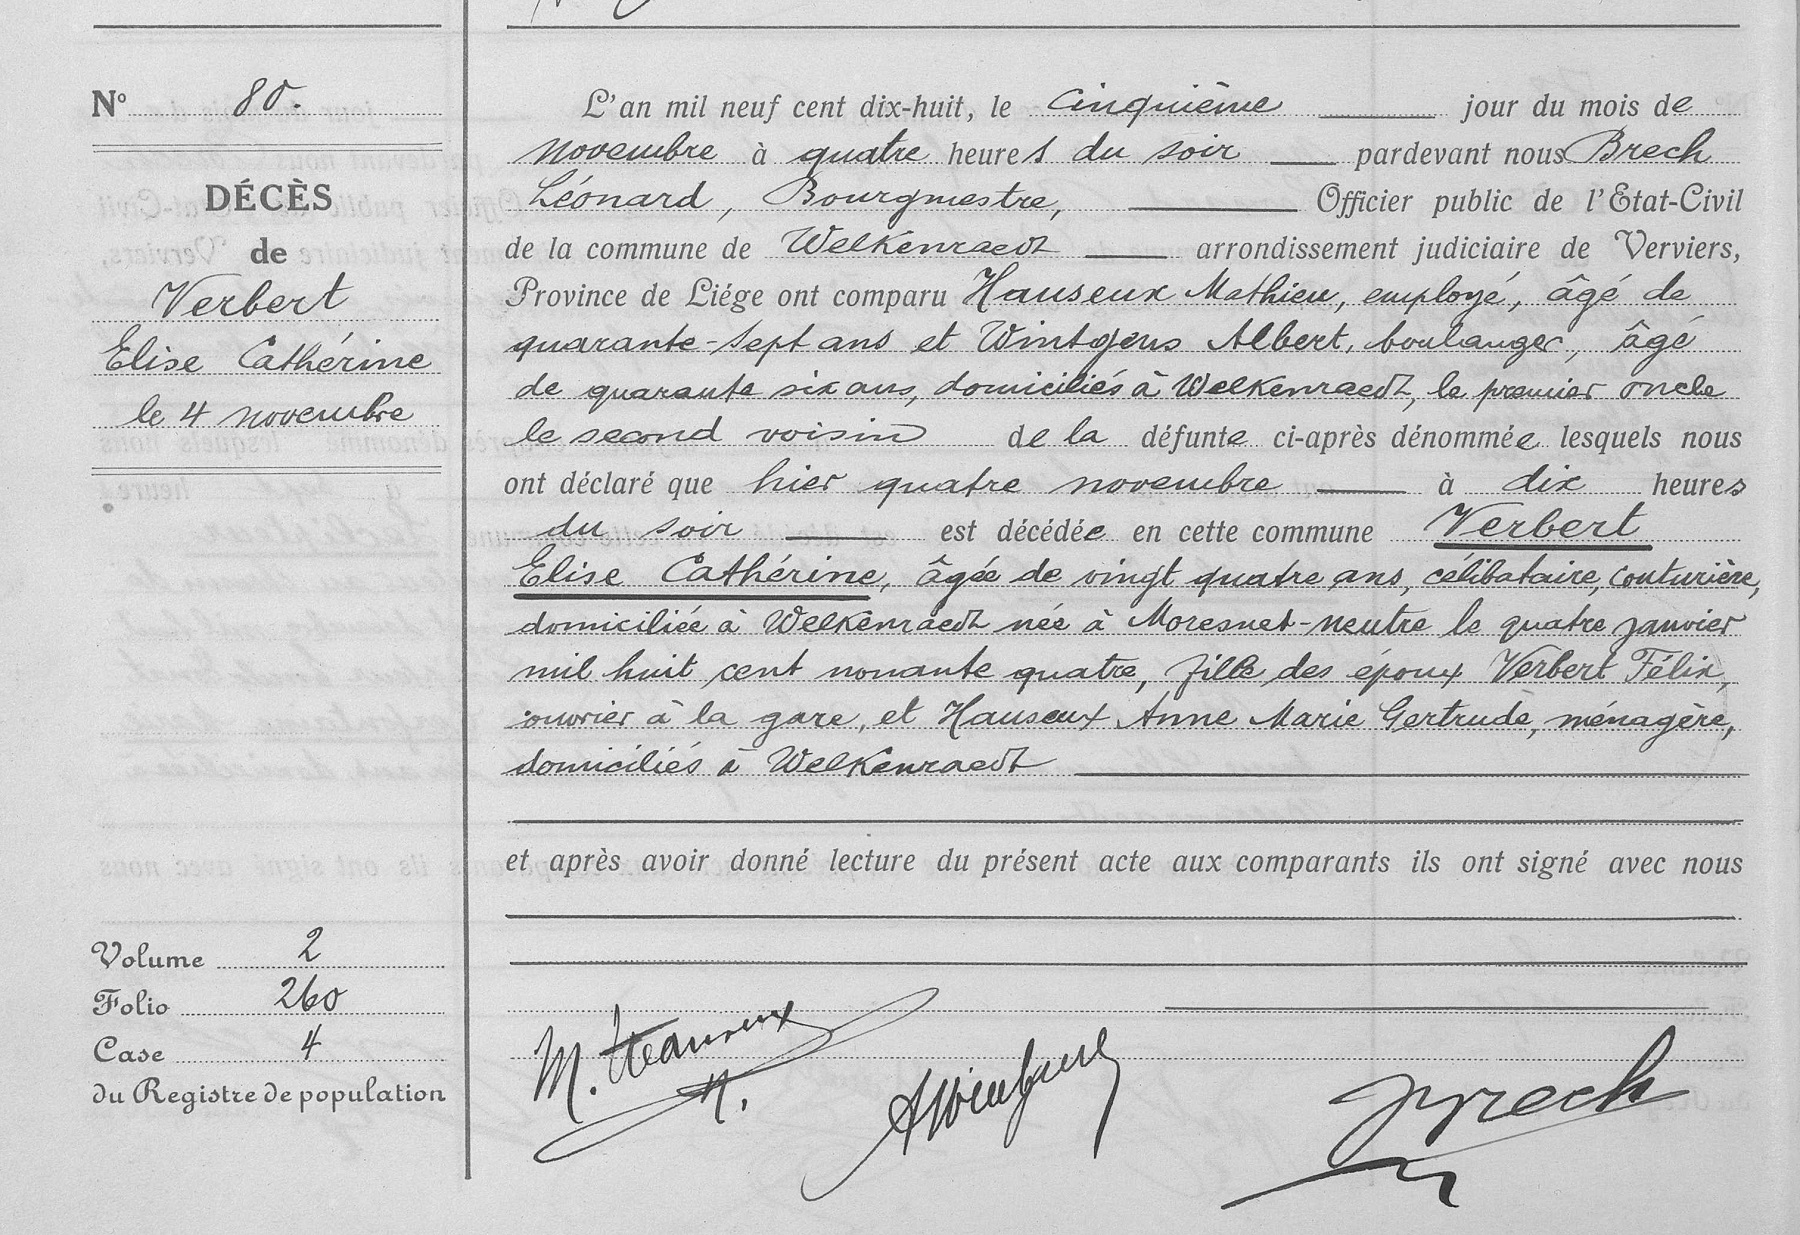 N° 80.
DÉCÈS
de
Verbert
Elise Cathérine
le 4 novembre
L'an mil neuf cent dix-huit, le cinquième jour du mois de
novembre à quatre heures du soir pardevant nous Brech
Léonard, Bourgmestre, Officier public de l'Etat-Civil
de la commune de Welkenraedt arrondissement judiciaire de Verviers,
Province de Liége ont comparu Hauseux Mathieu, employé, âgé de
quarante-sept ans et Wintgens Albert, boulanger, âgé
de quarante six ans, domiciliés à Welkenraedt, le premier oncle
le second voisin de la défunte ci-après dénommée lesquels nous
ont déclaré que hier quatre novembre à dix heures
du soir est décédée en cette commune Verbert
Elise Cathérine, âgée de vingt quatre ans, célibataire, couturière,
domiciliée à Welkenraedt née à Moresnet-neutre le quatre janvier
mil huit cent nonante quatre, fille des époux Verbert Félix,
ouvrier à la gare, et Hauseux Anne Marie Gertrude, ménagère,
domiciliés à Welkenraedt
et après avoir donné lecture du présent acte aux comparants ils ont signé avec nous
Volume 2
Folio 260
Case 4
du Registre de population
M. Hauseux
AWintgens
Brech